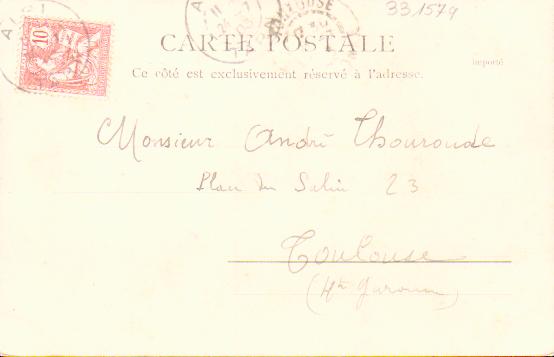 33.1579
10
TOULOUSE
CARTE POSTALE
Ce côté est exclusivement réservé à l'adresse.
importé
Monsieur André Thouroude
Place du Salin 23
Toulouse
(Hte Garonne)